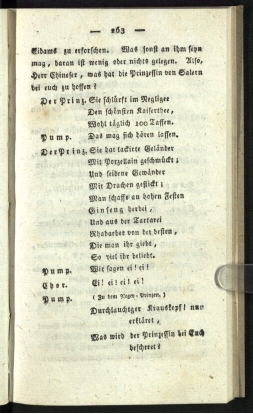 — 263 —
Eidams zu erforschen. Was sonst an ihm seyn
mag, daran ist wenig oder nichts gelegen. Also,
Herr Chineser, was hat die Prinzessin von Salern
bei euch zu hoffen?
Der Prinz. Sie schlürft im Negligee
Den schönsten Kaiserthee,
Wohl täglich 100 Tassen.
Pump. Das mag sich hören lassen.
Der Prinz. Sie hat lackirte Geländer
Mit Porzellain geschmückt;
Und seidene Gewänder
Mit Drachen gestickt;
Man schafft an hohen Festen
Ginseng herbei,
Und aus der Tartarei
Rhabarber von der besten,
Die man ihr giebt,
So viel ihr beliebt.
Pump. Wir sagen ei! ei!
Chor. Ei! ei! ei! ei!
Pump. (Zu dem Neger-Prinzen.)
Durchlauchtger Krauskopf! nun
erkläret,
Was wird der Prinzessin bei Euch
bescheret?